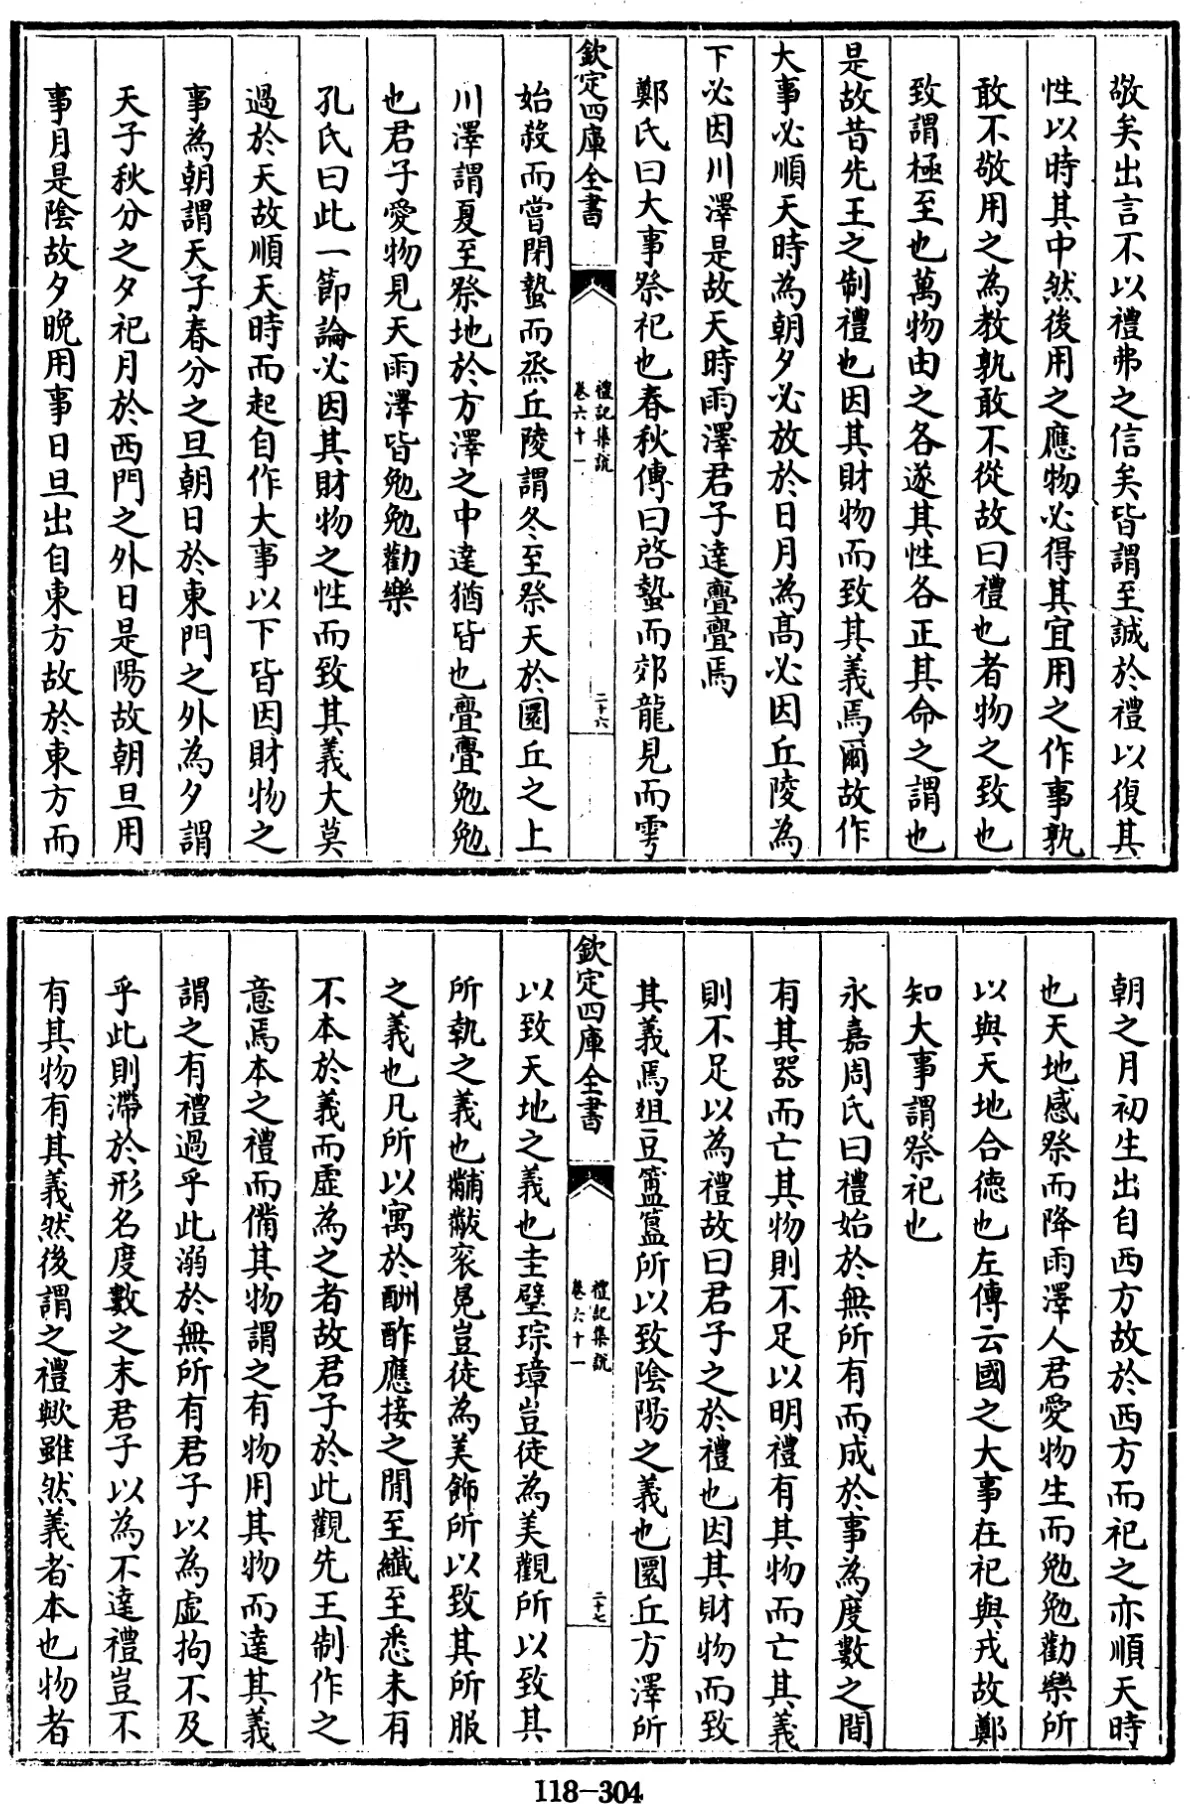 敬矣出言不以禮弗之信矣皆謂至誠於禮以復其
性以時其中然後用之應物必得其宜用之作事孰
敢不敬用之為教孰敢不從故曰禮也者物之致也
致謂極至也萬物由之各遂其性各正其命之謂也
是故昔先王之制禮也因其財物而致其義焉爾故作
大事必順天時為朝夕必放於日月為髙必因丘陵為
下必因川澤是故天時雨澤君子達亹亹焉
鄭氏曰大事祭祀也春秋傳曰啓蟄而郊龍見而雩
欽定四庫全書
禮記集説
卷六十一
二十六
始殺而嘗閉蟄而烝丘陵謂冬至祭天於圜丘之上
川澤謂夏至祭地於方澤之中達猶皆也亹亹勉勉
也君子愛物見天雨澤皆勉勉勸樂
孔氏曰此一節論必因其財物之性而致其義大莫
過於天故順天時而起自作大事以下皆因財物之
事為朝謂天子春分之旦朝日於東門之外為夕謂
天子秋分之夕祀月於西門之外日是陽故朝旦用
事月是陰故夕晩用事日旦出自東方故於東方而
朝之月初生出自西方故於西方而祀之亦順天時
也天地感祭而降雨澤人君愛物生而勉勉勸樂所
以與天地合徳也左傳云國之大事在祀與戎故鄭
知大事謂祭祀也
永嘉周氏曰禮始於無所有而成於事為度數之間
有其器而亡其物則不足以明禮有其物而亡其義
則不足以為禮故曰君子之於禮也因其財物而致
其義焉俎豆簠簋所以致陰陽之義也圜丘方澤所
欽定四庫全書
禮記集説
卷六十一
二十七
以致天地之義也圭璧琮璋豈徒為美觀所以致其
所執之義也黼黻衮冕豈徒為美飾所以致其所服
之義也凡所以寓於酬酢應接之間至纎至悉未有
不本於義而虛為之者故君子於此觀先王制作之
意焉本之禮而備其物謂之有物用其物而達其義
謂之有禮過乎此溺於無所有君子以為虛拘不及
乎此則滯於形名度數之末君子以為不達禮豈不
有其物有其義然後謂之禮歟雖然義者本也物者
118-304